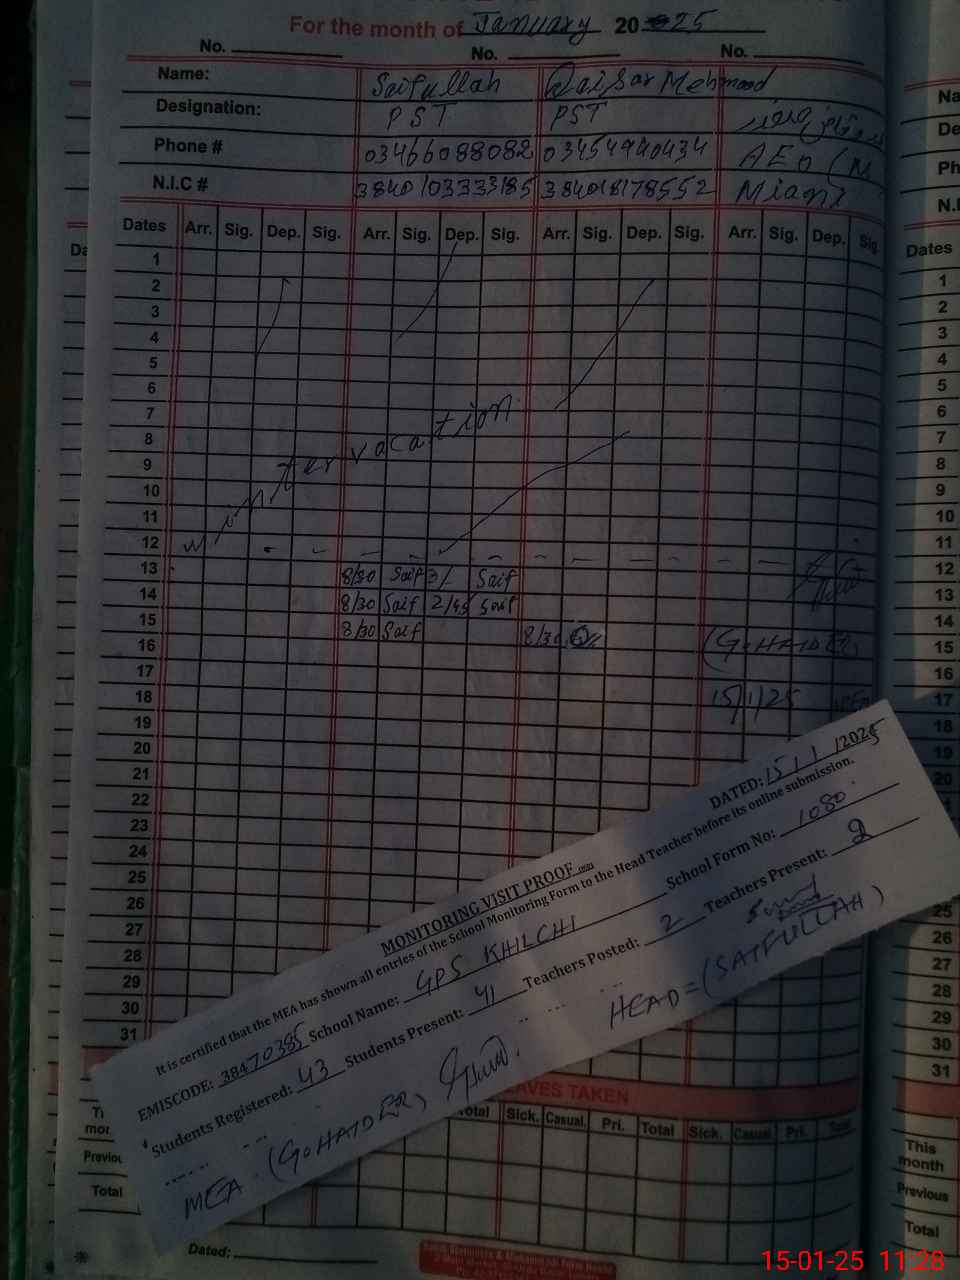 For the month of January 2025
No. No. No.
Name: Saifullah Qaisar Mehmood
Designation: PST PST
Phone # 03466088082 03454940434 AEO (M
N.I.C # 3840103333185 384018178552 Miani
Dates Arr. Sig. Dep. Sig. Arr. Sig. Dep. Sig. Arr. Sig. Dep. Sig. Arr. Sig. Dep. Sig.
1
2
3
4
5
6
7
8
9
10
11
12
Winter vacation
13 8/30 Saif 3/- Saif
14 8/30 Saif 2/45 Saif
15 8/30 Saif 8/30
16 (G.HAIDER)
17
18 15/1/25 MEA
19
20
21
22
23
24
25
26
27
28
29
30
31
MONITORING VISIT PROOF DATED: 15/1/2025
It is certified that the MEA has shown all entries of the School Monitoring Form to the Head Teacher before its online submission.
EMISCODE: 38470385 School Name: GPS KHILCHI School Form No: 1080
Students Registered: 43 Students Present: 41 Teachers Posted: 2 Teachers Present: 2
MEA (G.HAIDER) HEAD=(SAIFULLAH)
LEAVES TAKEN
Total Sick. Casual. Pri. Total Sick. Casual. Pri. Total
Total
Dated:
Na
De
Ph
N.I
Dates
1
2
3
4
5
6
7
8
9
10
11
12
13
14
15
16
17
18
19
20
25
26
27
28
29
30
31
This month
Previous
Total
15-01-25 11:28